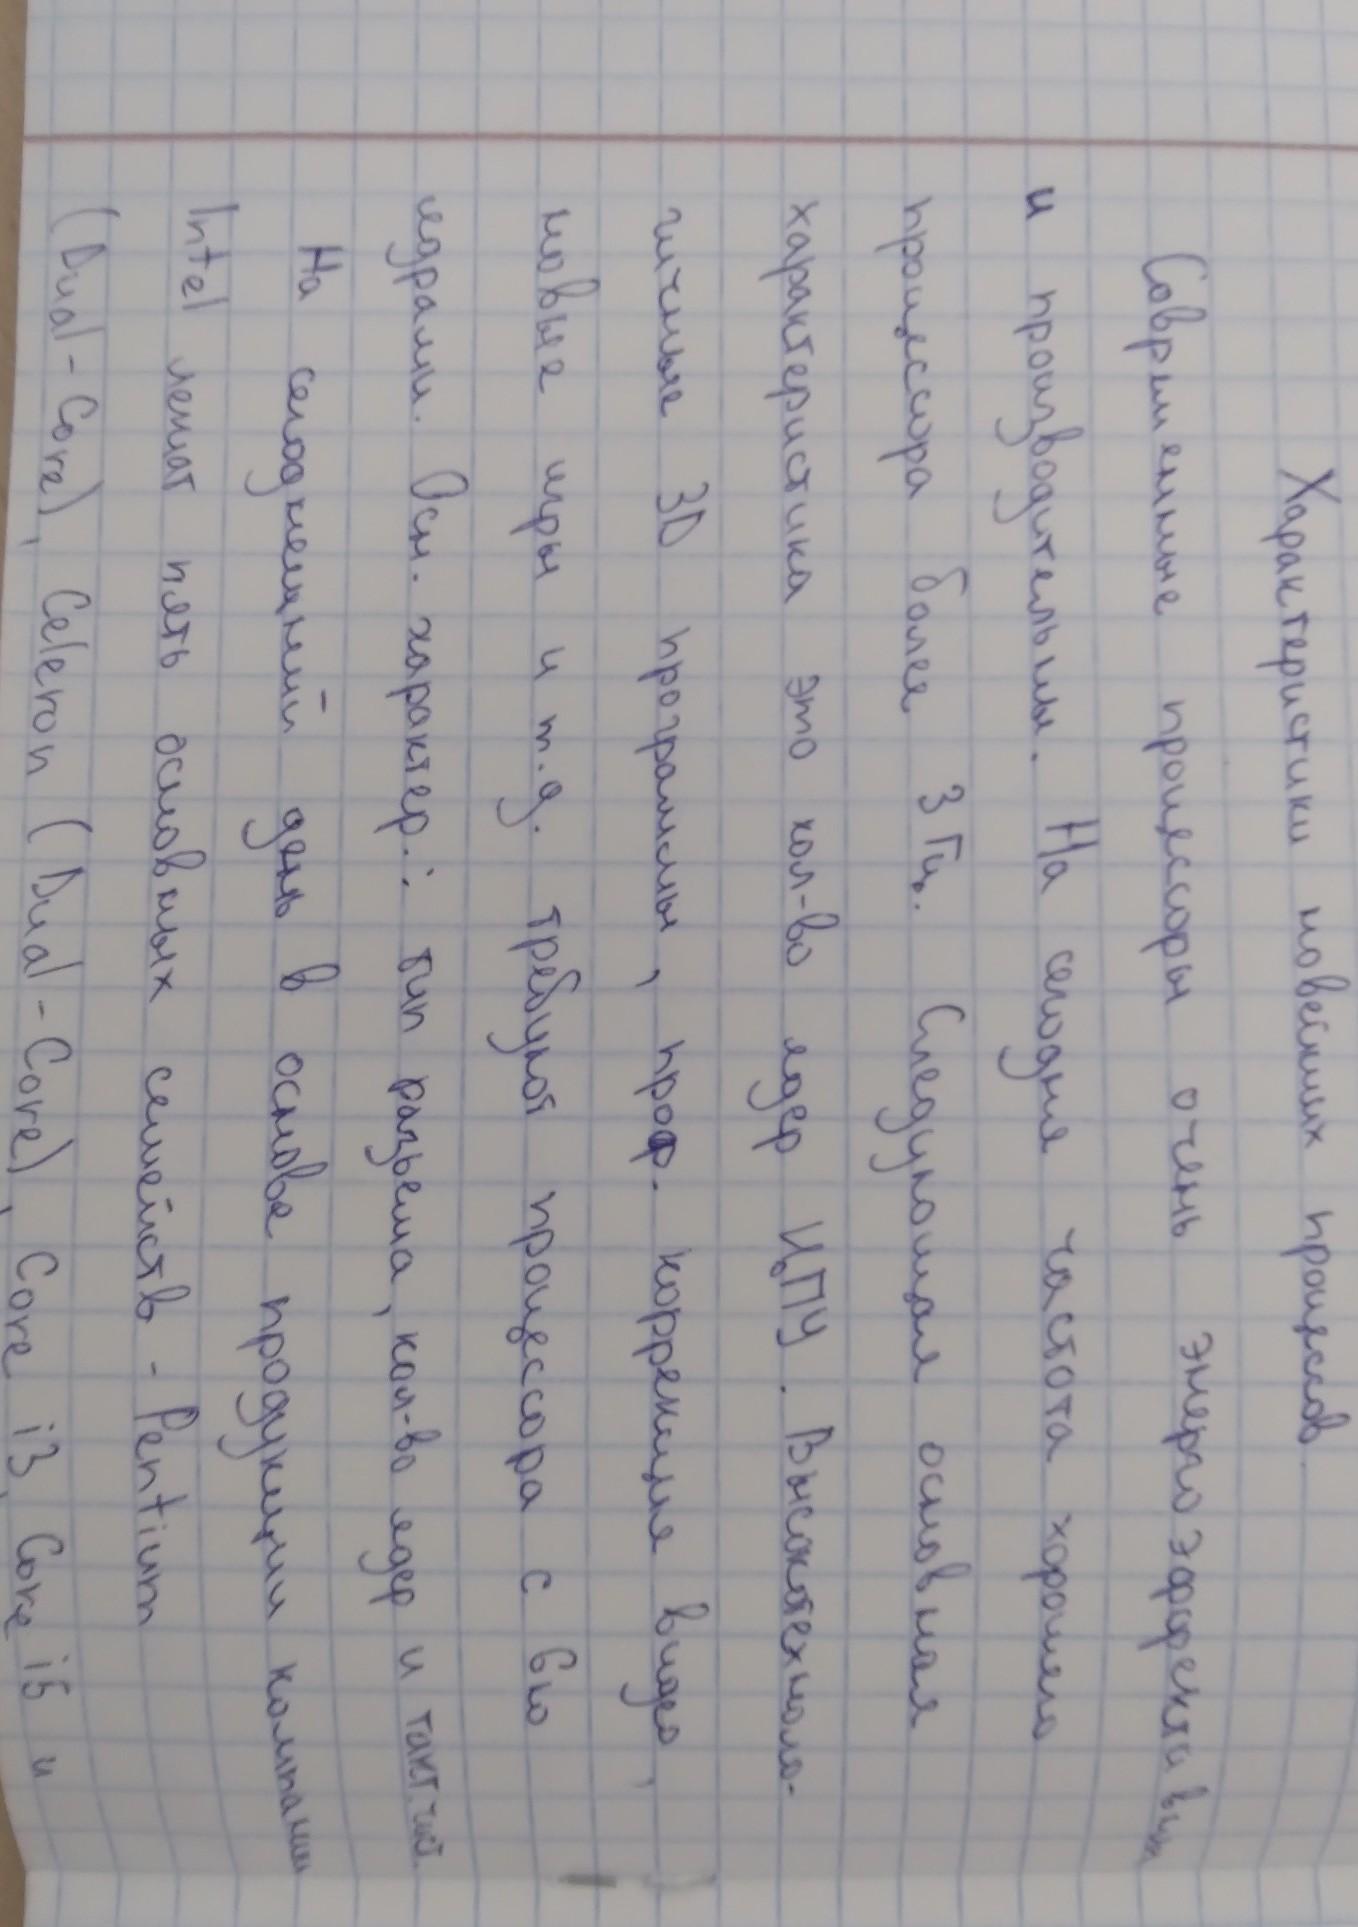 Характеристики новейших процессов.
Современные процессоры очень энергоэффективны
и производительны. На сегодня частота хорошего
процессора более 3 Гц. Следующая основная
характеристика это кол-во ядер ЦПУ. Высокотехноло-
гичные 3D программы, проф. коррекция видео,
новые игры и т.д. требуют процессора с 6ю
ядрами. Осн. характер.: тип разъема, кол-во ядер и такт. част.
На сегоднешний день в основе продукции компании
Intel лежат пять основных семейств - Pentium
(Dual-Core), Celeron (Dual-Core), Core i3, Core i5 и